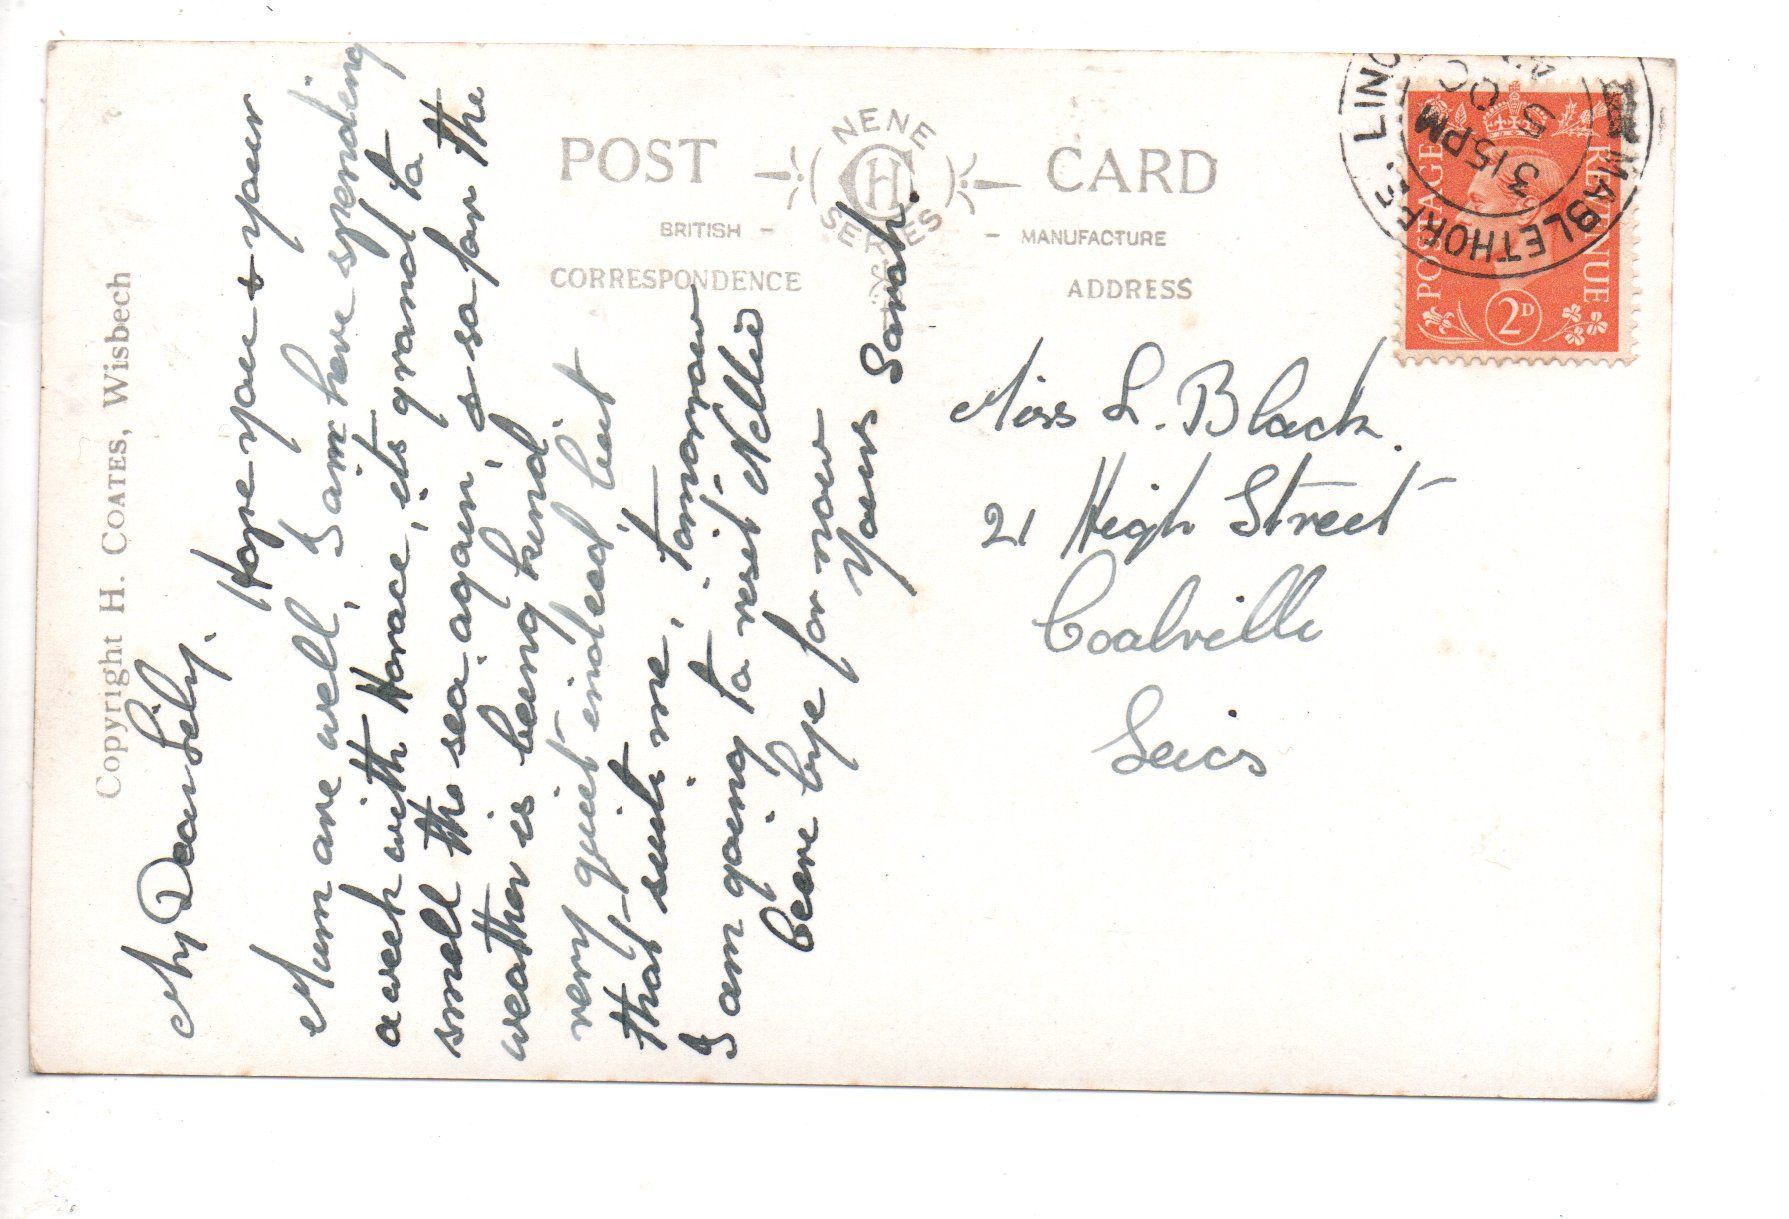 POST CARD
NENE
CH
SERIES
BRITISH - - MANUFACTURE
CORRESPONDENCE
ADDRESS
Copyright H. COATES, Wisbech
My Dear Lily.
Hope you & your
Mum are well, I am here spending
a week with Horace, its grand to
smell the sea again, & so far the
weather is being kind.
very quiet indeed but
that suits me, tomorrow
I am going to visit Nellie
Cere bye for now
Yours Sarah.
Miss L. Black.
21 High Street
Coalville
Leics
POSTAGE
REVENUE
2D
MABLETHORPE. LINC
315PM
5 OC